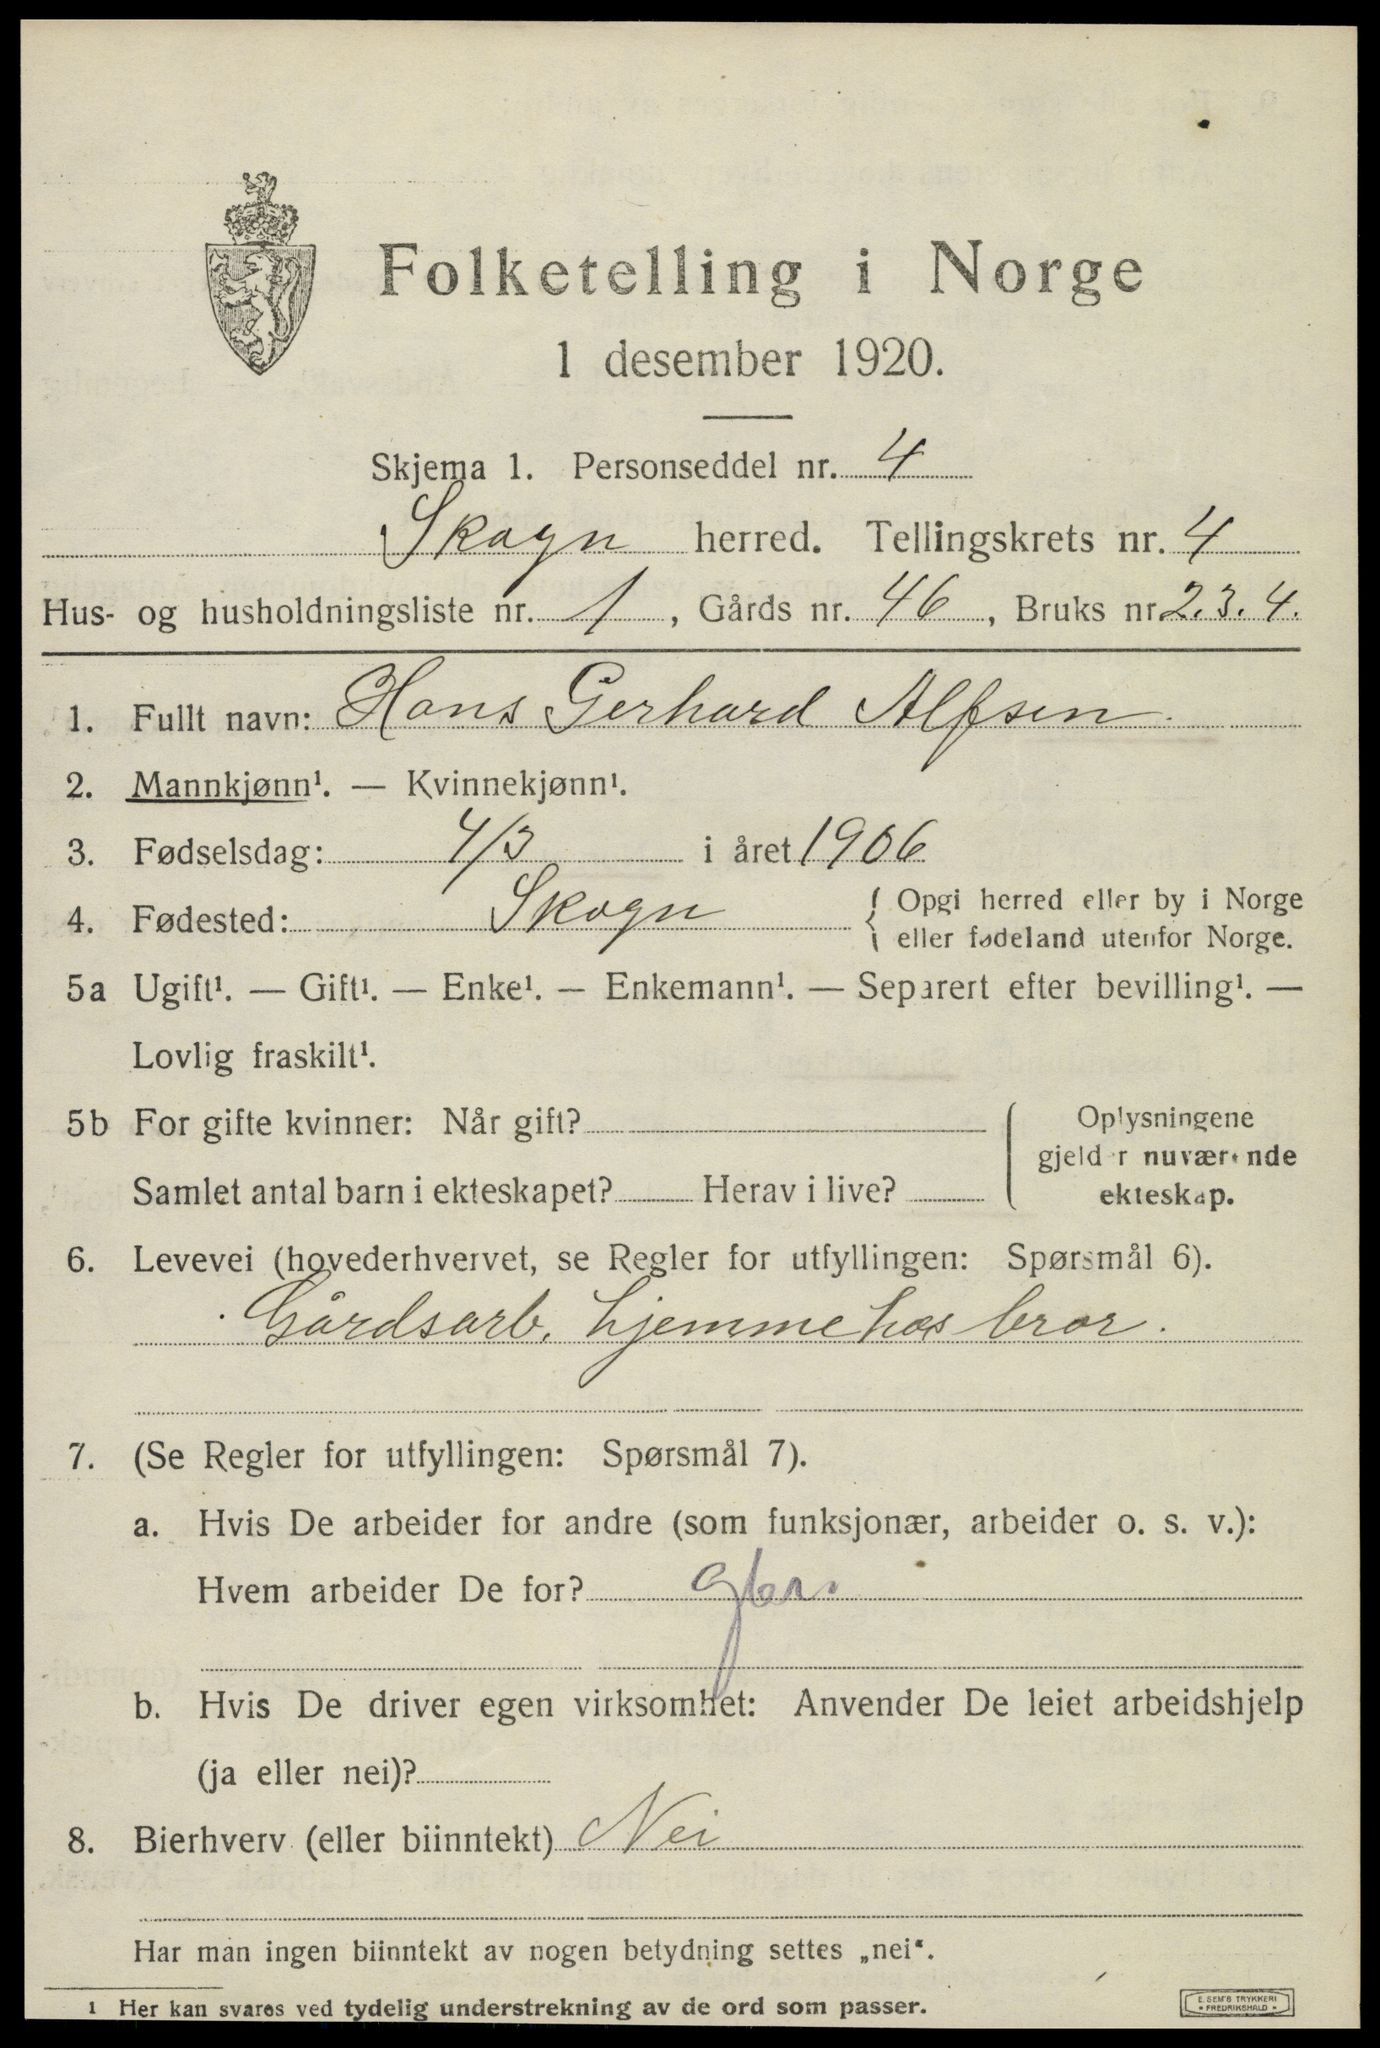 Folketelling i Norge
1 desember 1920.
Skjema 1. Personseddel nr. 4
Skogn herred. Tellingskrets nr. 4
Hus- og husholdningsliste nr. 1, Gårds nr. 46, Bruks nr. 2.3.4.
1. Fullt navn: Hans Gerhard Alfsen.
2. Mannkjønn¹. — Kvinnekjønn¹.
3. Fødselsdag: 4/3 i året 1906
4. Fødested: Skogn { Opgi herred eller by i Norge
eller fødeland utenfor Norge.
5a Ugift¹. — Gift¹. — Enke¹. — Enkemann¹. — Separert efter bevilling¹. —
Lovlig fraskilt¹.
5b For gifte kvinner: Når gift?
Samlet antal barn i ekteskapet? Herav i live?
Oplysningene
gjelder nuværende
ekteskap.
6. Levevei (hovederhvervet, se Regler for utfyllingen: Spørsmål 6).
Gårdsarb. hjemme hos bror.
7. (Se Regler for utfyllingen: Spørsmål 7).
a. Hvis De arbeider for andre (som funksjonær, arbeider o. s. v.):
Hvem arbeider De for?
b. Hvis De driver egen virksomhet: Anvender De leiet arbeidshjelp
(ja eller nei)?
8. Bierhverv (eller biinntekt) Nei
Har man ingen biinntekt av nogen betydning settes „nei“.
1 Her kan svares ved tydelig understrekning av de ord som passer.
E. SEM'S TRYKKERI
* FREDRIKSHALD *